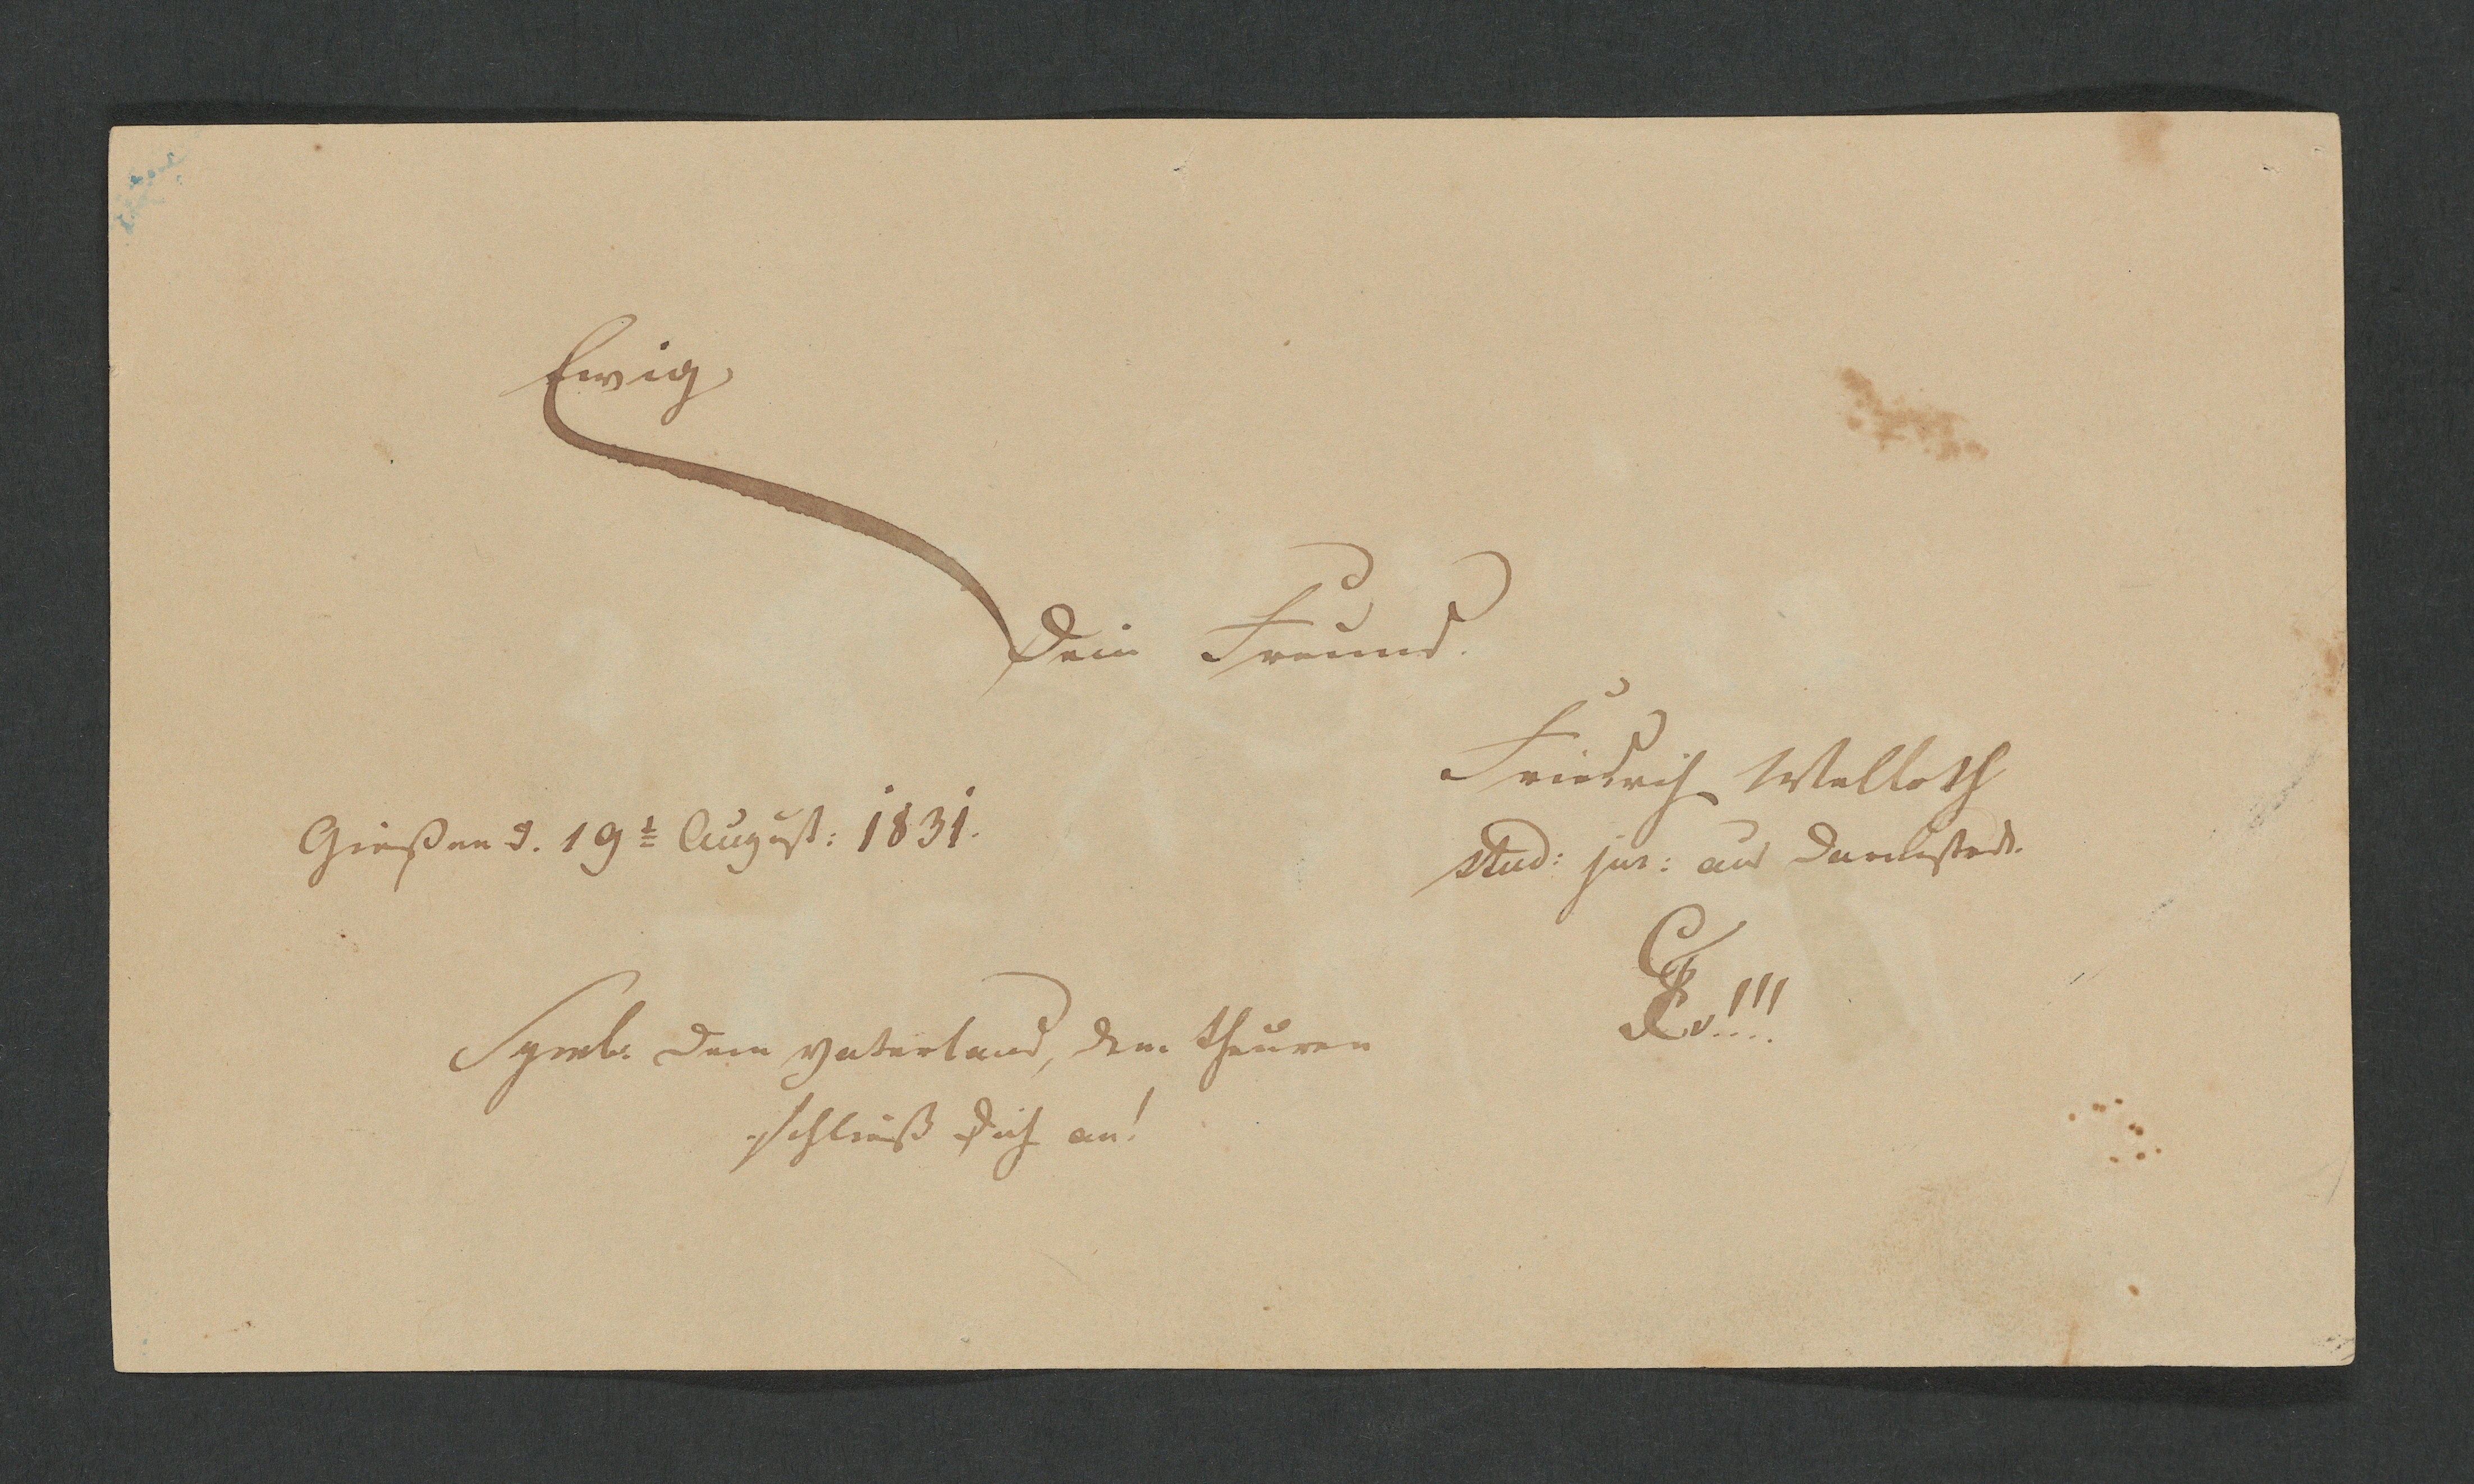 Ewig
Dein Freund.
Friedrich Walloth
stud: jur: aus Darmstadt.
Gießen d. 19t August: 1831.
Symb. Dem Vaterland, dem theuren
schließ Dich an!